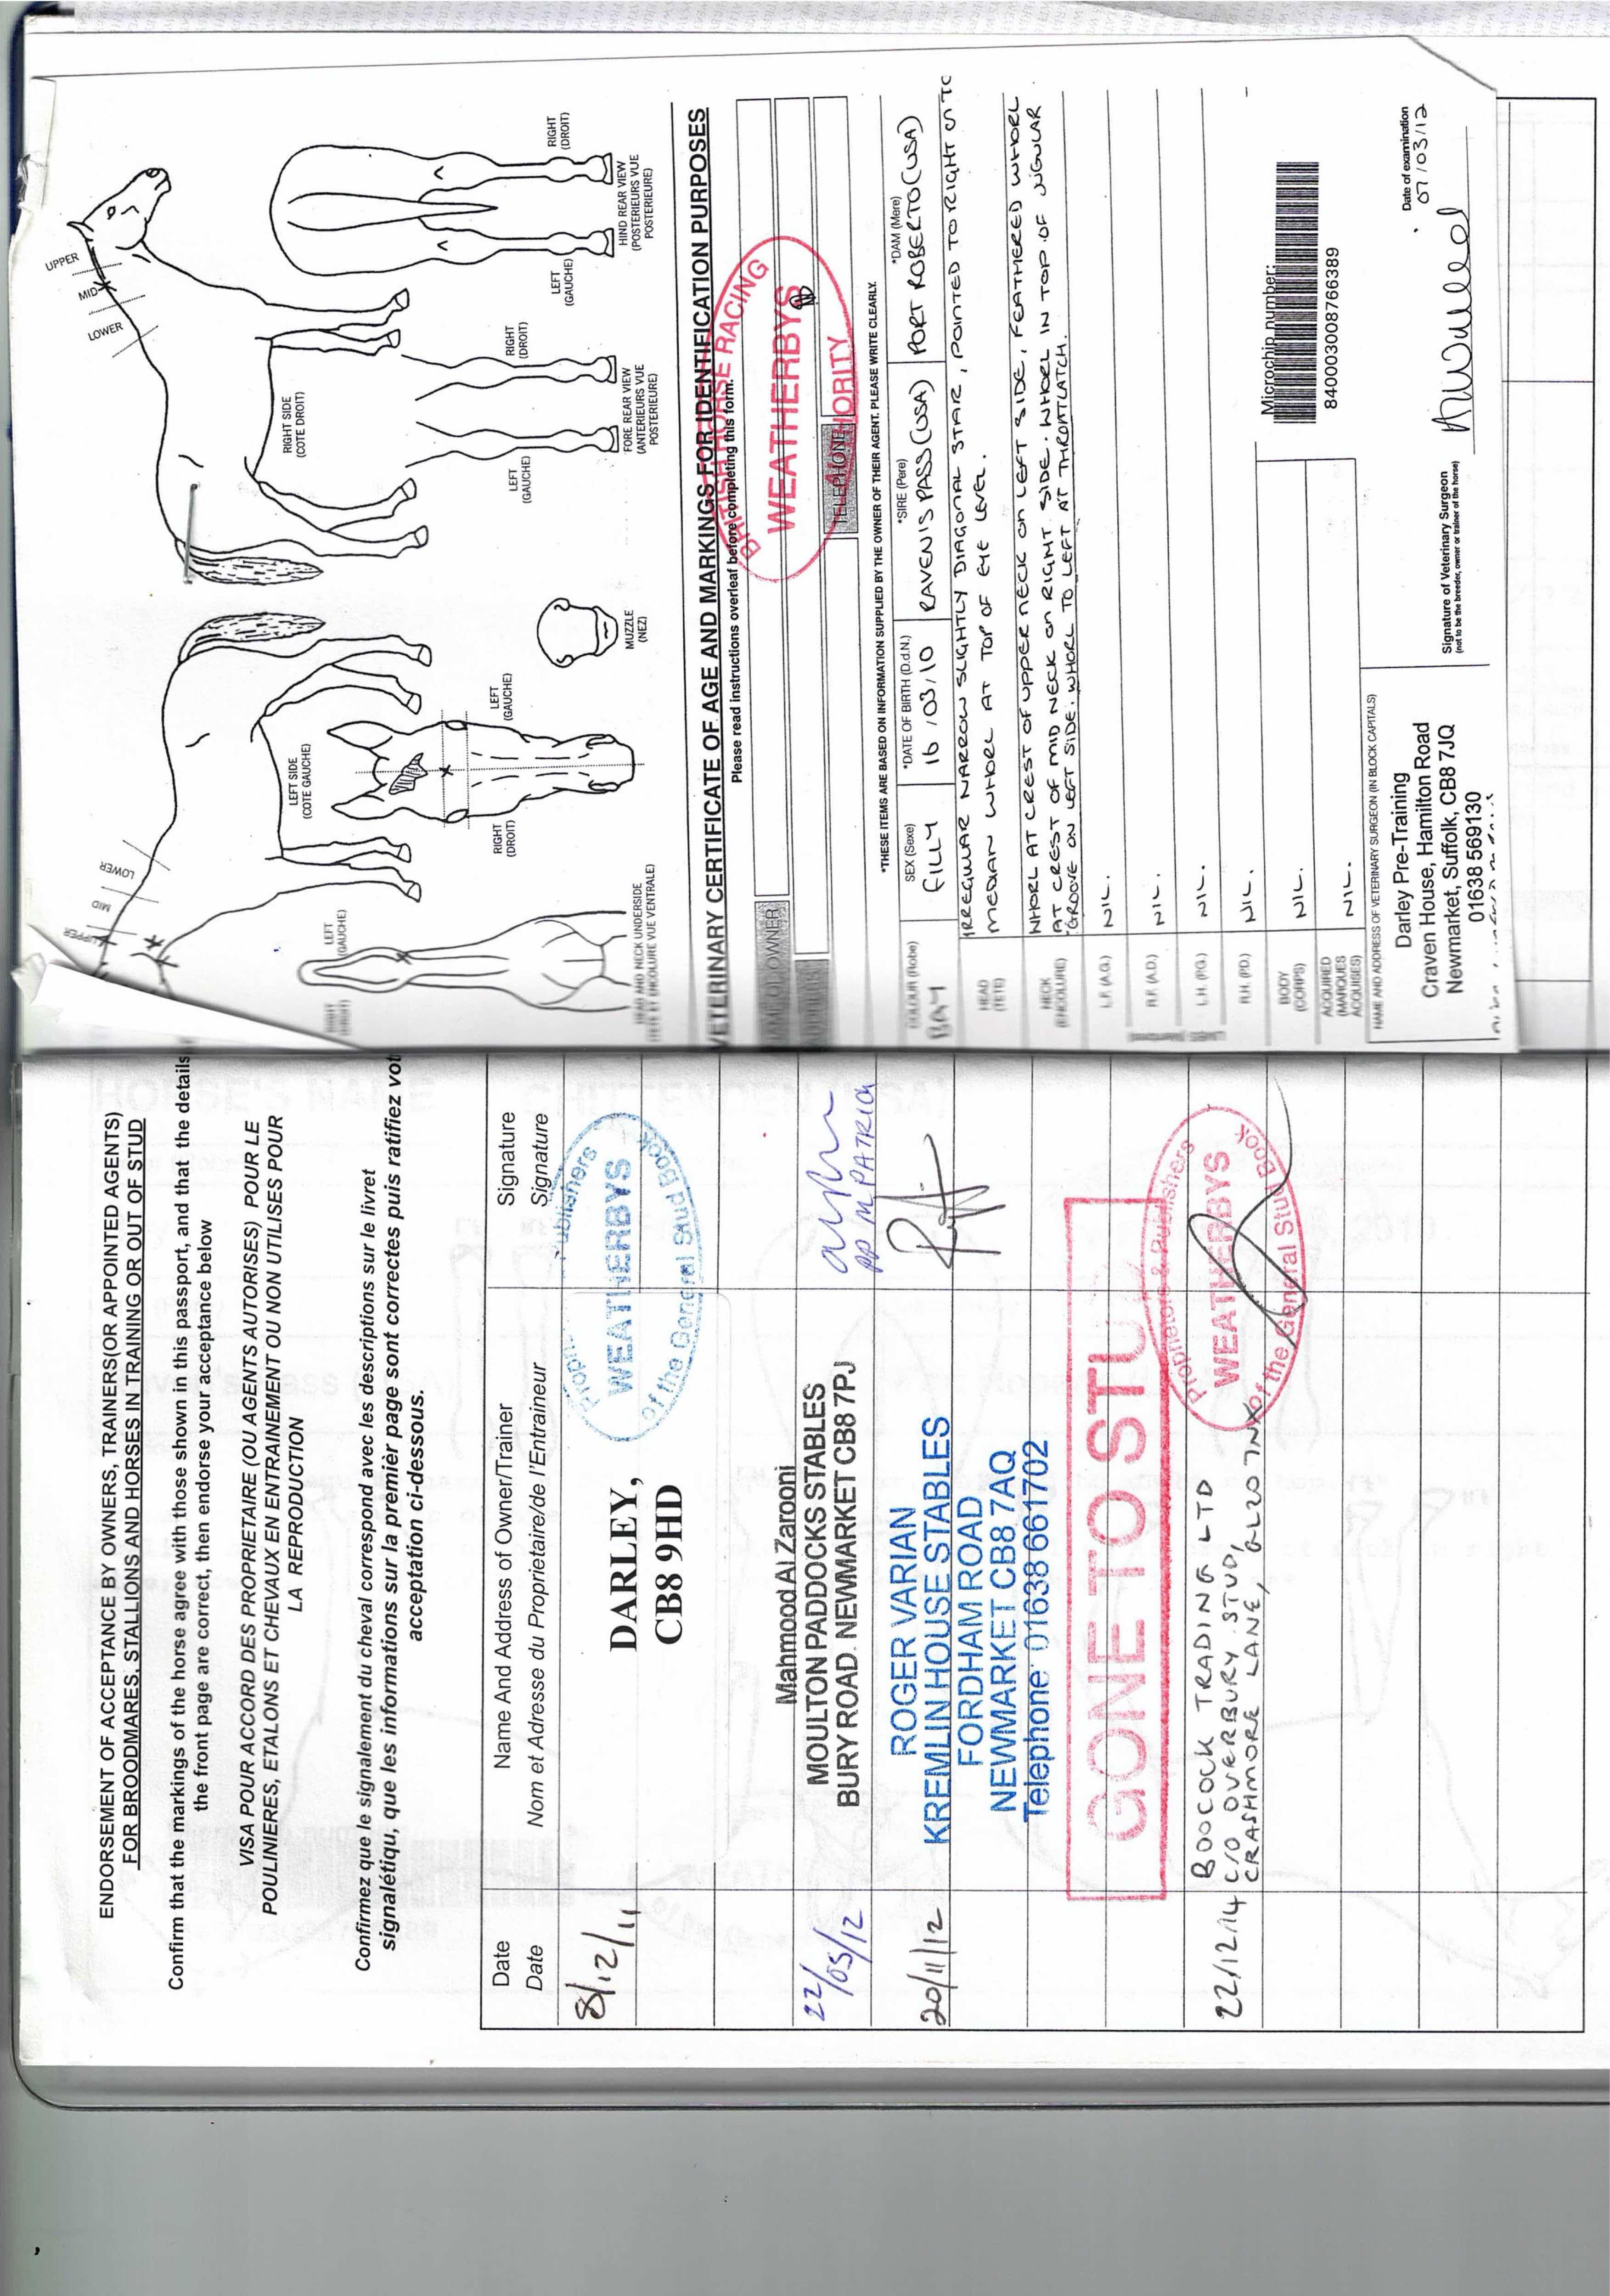 ENDORSEMENT OF ACCEPTANCE BY OWNERS, TRAINERS(OR APPOINTED AGENTS)
FOR BROODMARES, STALLIONS AND HORSES IN TRAINING OR OUT OF STUD
Confirm that the markings of the horse agree with those shown in this passport, and that the details
the front page are correct, then endorse your acceptance below
VISA POUR ACCORD DES PROPRIETAIRE (OU AGENTS AUTORISES) POUR LE
POULINIERES, ETALONS ET CHEVAUX EN ENTRAINEMENT OU NON UTILISES POUR
LA REPRODUCTION
Confirmez que le signalement du cheval correspond avec les descriptions sur le livret
signalétiqu, que les informations sur la prèmier page sont correctes puis ratifiez vot
acceptation ci-dessous.
Date Name And Address of Owner/Trainer Signature
Date Nom et Adresse du Proprietaire/de l'Entraineur Signature
8/12/11 DARLEY,
CB8 9HD
Publishers
WEATHERBYS
of the General Stud Book
22/05/12 Mahmood Al Zarooni
MOULTON PADDOCKS STABLES
BURY ROAD. NEWMARKET CB8 7PJ
20/11/12 ROGER VARIAN
KREMLIN HOUSE STABLES
FORDHAM ROAD
NEWMARKET CB8 7AQ
Telephone: 01638 661702
GONE TO STU
22/12/14 BOCOCK TRADING LTD
C/O OVERBURY STUD,
CRASHMORE LANE, GL20 7NX
Proprietors & Publishers
WEATHERBYS
of the General Stud Book
UPPER
MID
LOWER
LEFT
(GAUCHE)
HEAD AND NECK UNDERSIDE
LEFT SIDE
(COTE GAUCHE)
RIGHT
(DROIT)
LEFT
(GAUCHE)
MUZZLE
(NEZ)
UPPER
MID
LOWER
RIGHT SIDE
(COTE DROIT)
LEFT
(GAUCHE)
RIGHT
(DROIT)
FORE REAR VIEW
(ANTERIEURS VUE
POSTERIEURE)
LEFT
(GAUCHE)
RIGHT
(DROIT)
HIND REAR VIEW
(POSTERIEURS VUE
POSTERIEURE)
VETERINARY CERTIFICATE OF AGE AND MARKINGS FOR IDENTIFICATION PURPOSES
Please read instructions overleaf before completing this form.
NAME OF OWNER
TELEPHONE
BRITISH HORSE RACING
WEATHERBYS
AUTHORITY
*THESE ITEMS ARE BASED ON INFORMATION SUPPLIED BY THE OWNER OF THEIR AGENT. PLEASE WRITE CLEARLY.
COLOUR (Robe) SEX (Sexe) *DATE OF BIRTH (D.d.N.) *SIRE (Pere) *DAM (Mere)
BAY FILLY 16/03/10 RAVEN'S PASS (USA) PORT ROBERTO (USA)
HEAD
(TETE)
IRREGULAR NARROW SLIGHTLY DIAGONAL STAR, POINTED TO RIGHT
MEDIAN WHORL AT TOP OF EYE LEVEL.
NECK
(ENCOLURE)
WHORL AT CREST OF UPPER NECK ON LEFT SIDE, FEATHERED WHORL
AT CREST OF MID NECK ON RIGHT SIDE. WHORL IN TOP OF JUGULAR
GROOVE ON LEFT SIDE. WHORL TO LEFT AT THROATLATCH.
L.F. (A.G.) NIL.
R.F. (A.D.) NIL.
L.H. (P.G.) NIL.
R.H. (P.D.) NIL.
BODY
(CORPS)
NIL.
ACQUIRED
(MARQUES
ACQUISES)
NIL.
Microchip number:
840003008766389
NAME AND ADDRESS OF VETERINARY SURGEON (IN BLOCK CAPITALS)
Darley Pre-Training
Craven House, Hamilton Road
Newmarket, Suffolk, CB8 7JQ
01638 569130
Signature of Veterinary Surgeon
(not to be the breeder, owner or trainer of the horse)
Date of examination
07/03/12